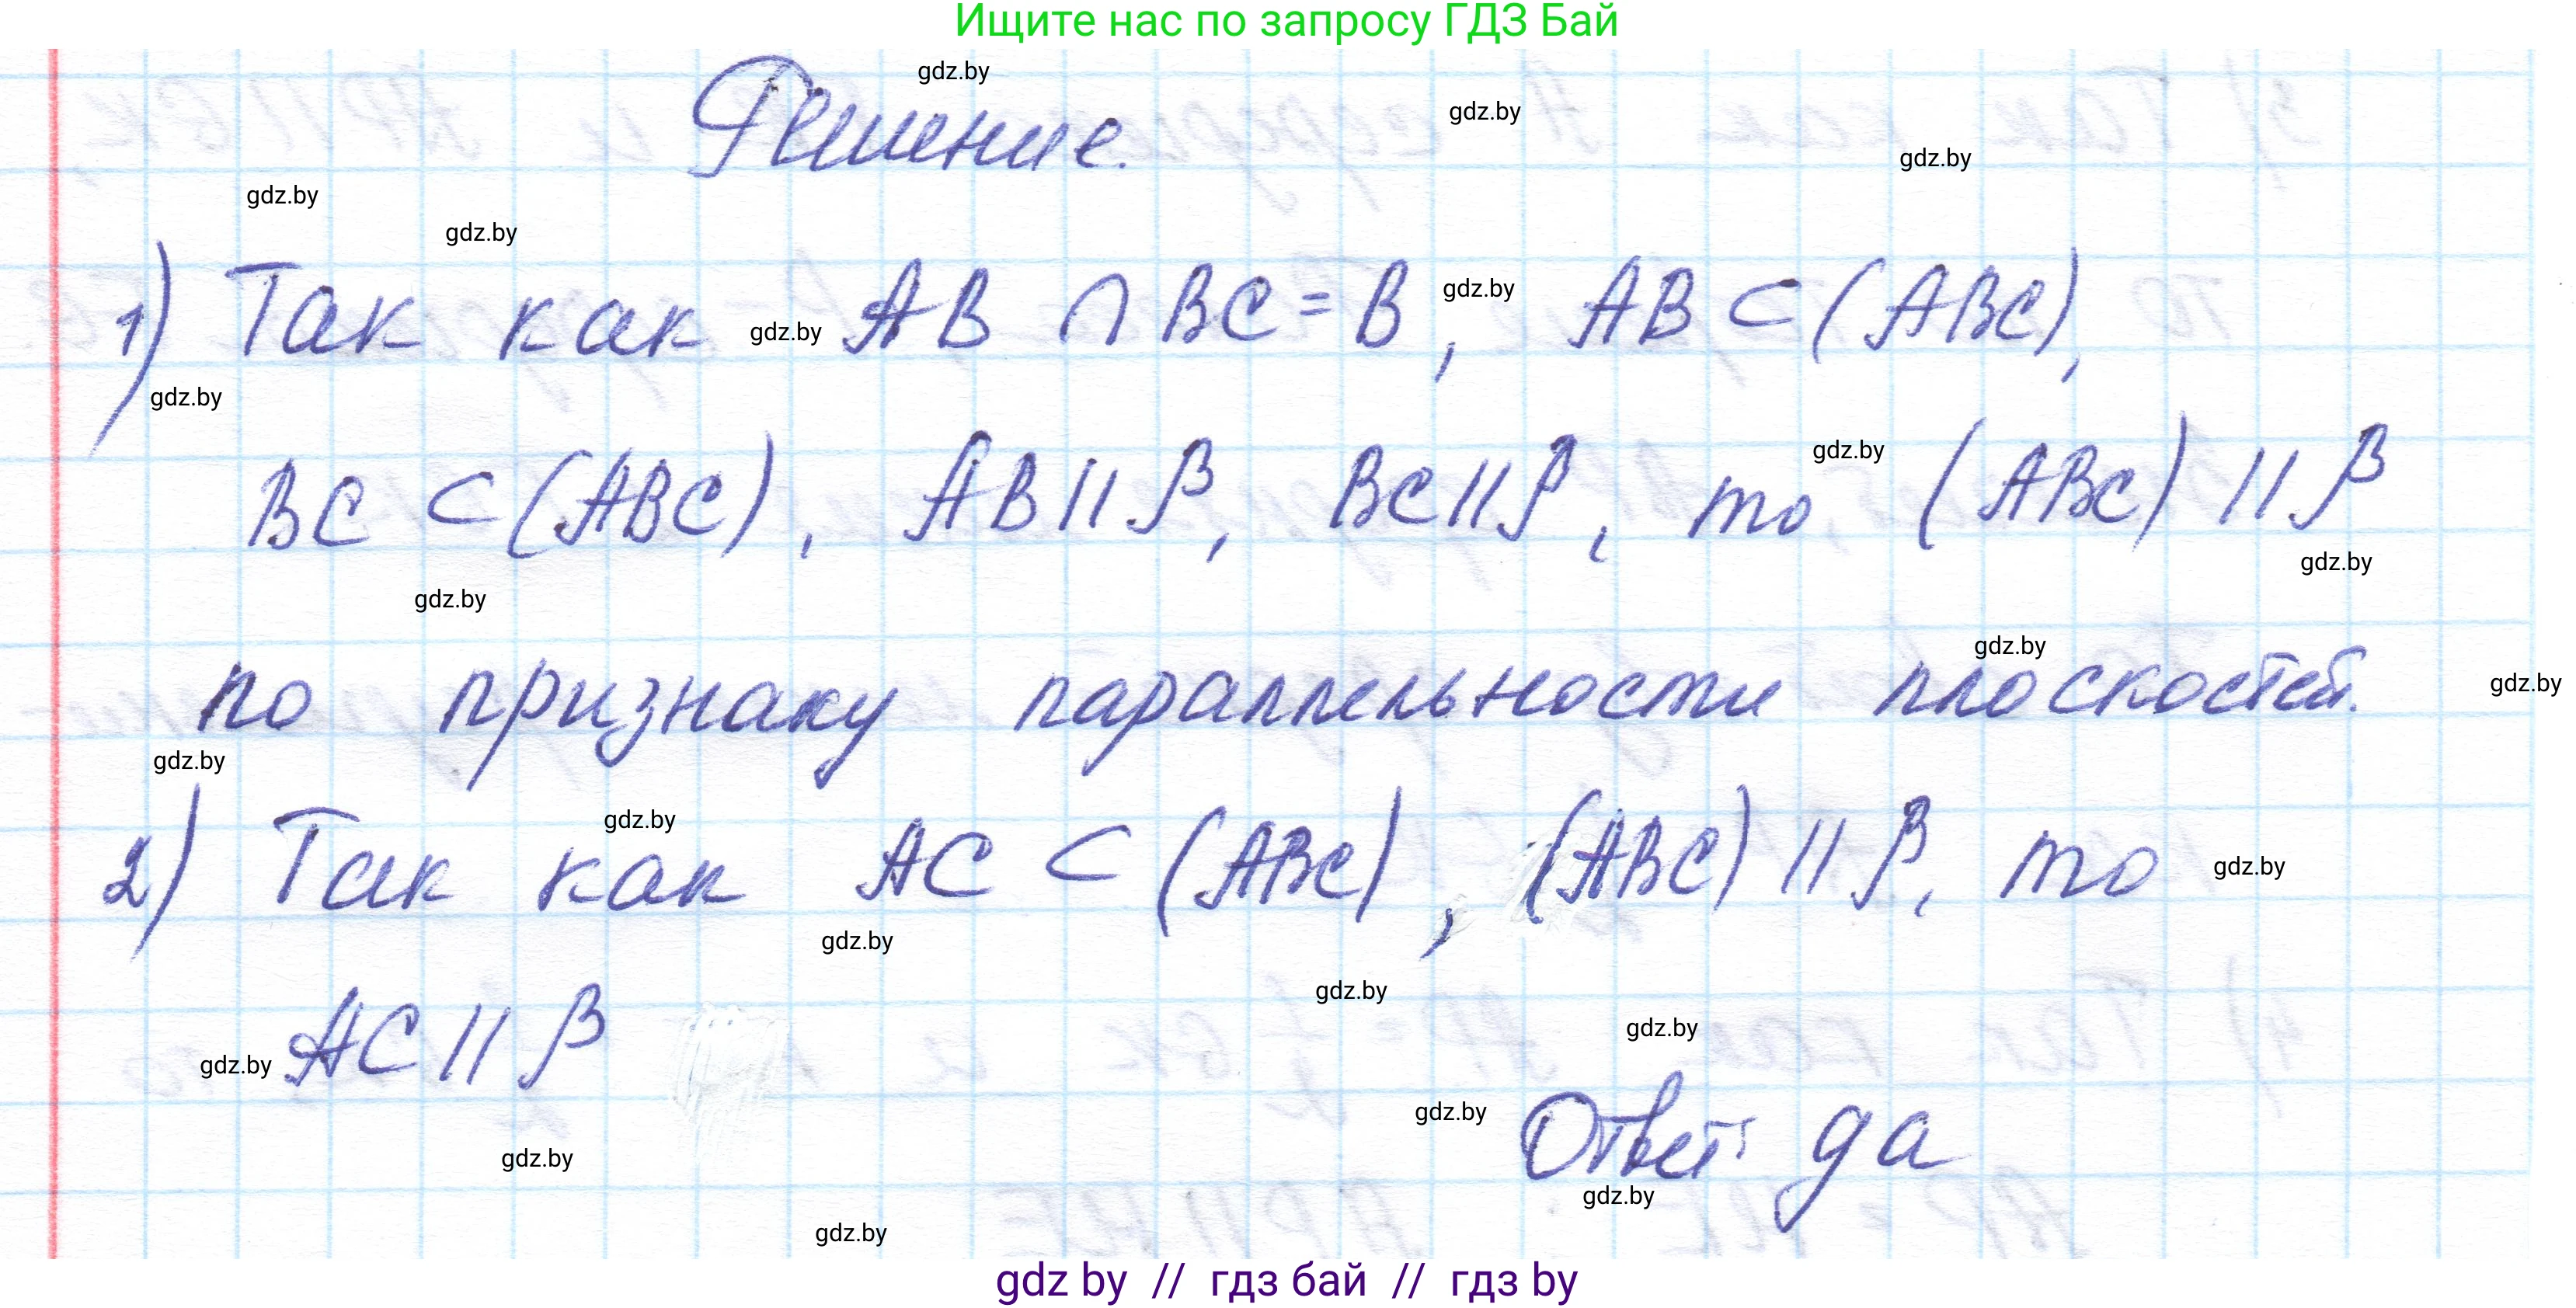 Ищите нас по запросу ГДЗ Бай
Решение.
gdz.by
gdz.by
gdz.by
gdz.by
gdz.by
1) Так как AB ∩ BC = B, AB ⊂ (ABC),
gdz.by
gdz.by
gdz.by
BC ⊂ (ABC), AB || β, BC || β, то (ABC) || β
gdz.by
gdz.by
gdz.by
по признаку параллельности плоскостей.
gdz.by
gdz.by
gdz.by
2) Так как AC ⊂ (ABC), (ABC) || β, то
gdz.by
gdz.by
gdz.by
AC || β
gdz.by
gdz.by
gdz.by
Ответ: да
gdz.by
gdz.by
gdz.by
gdz.by
gdz by // гдз бай // гдз by